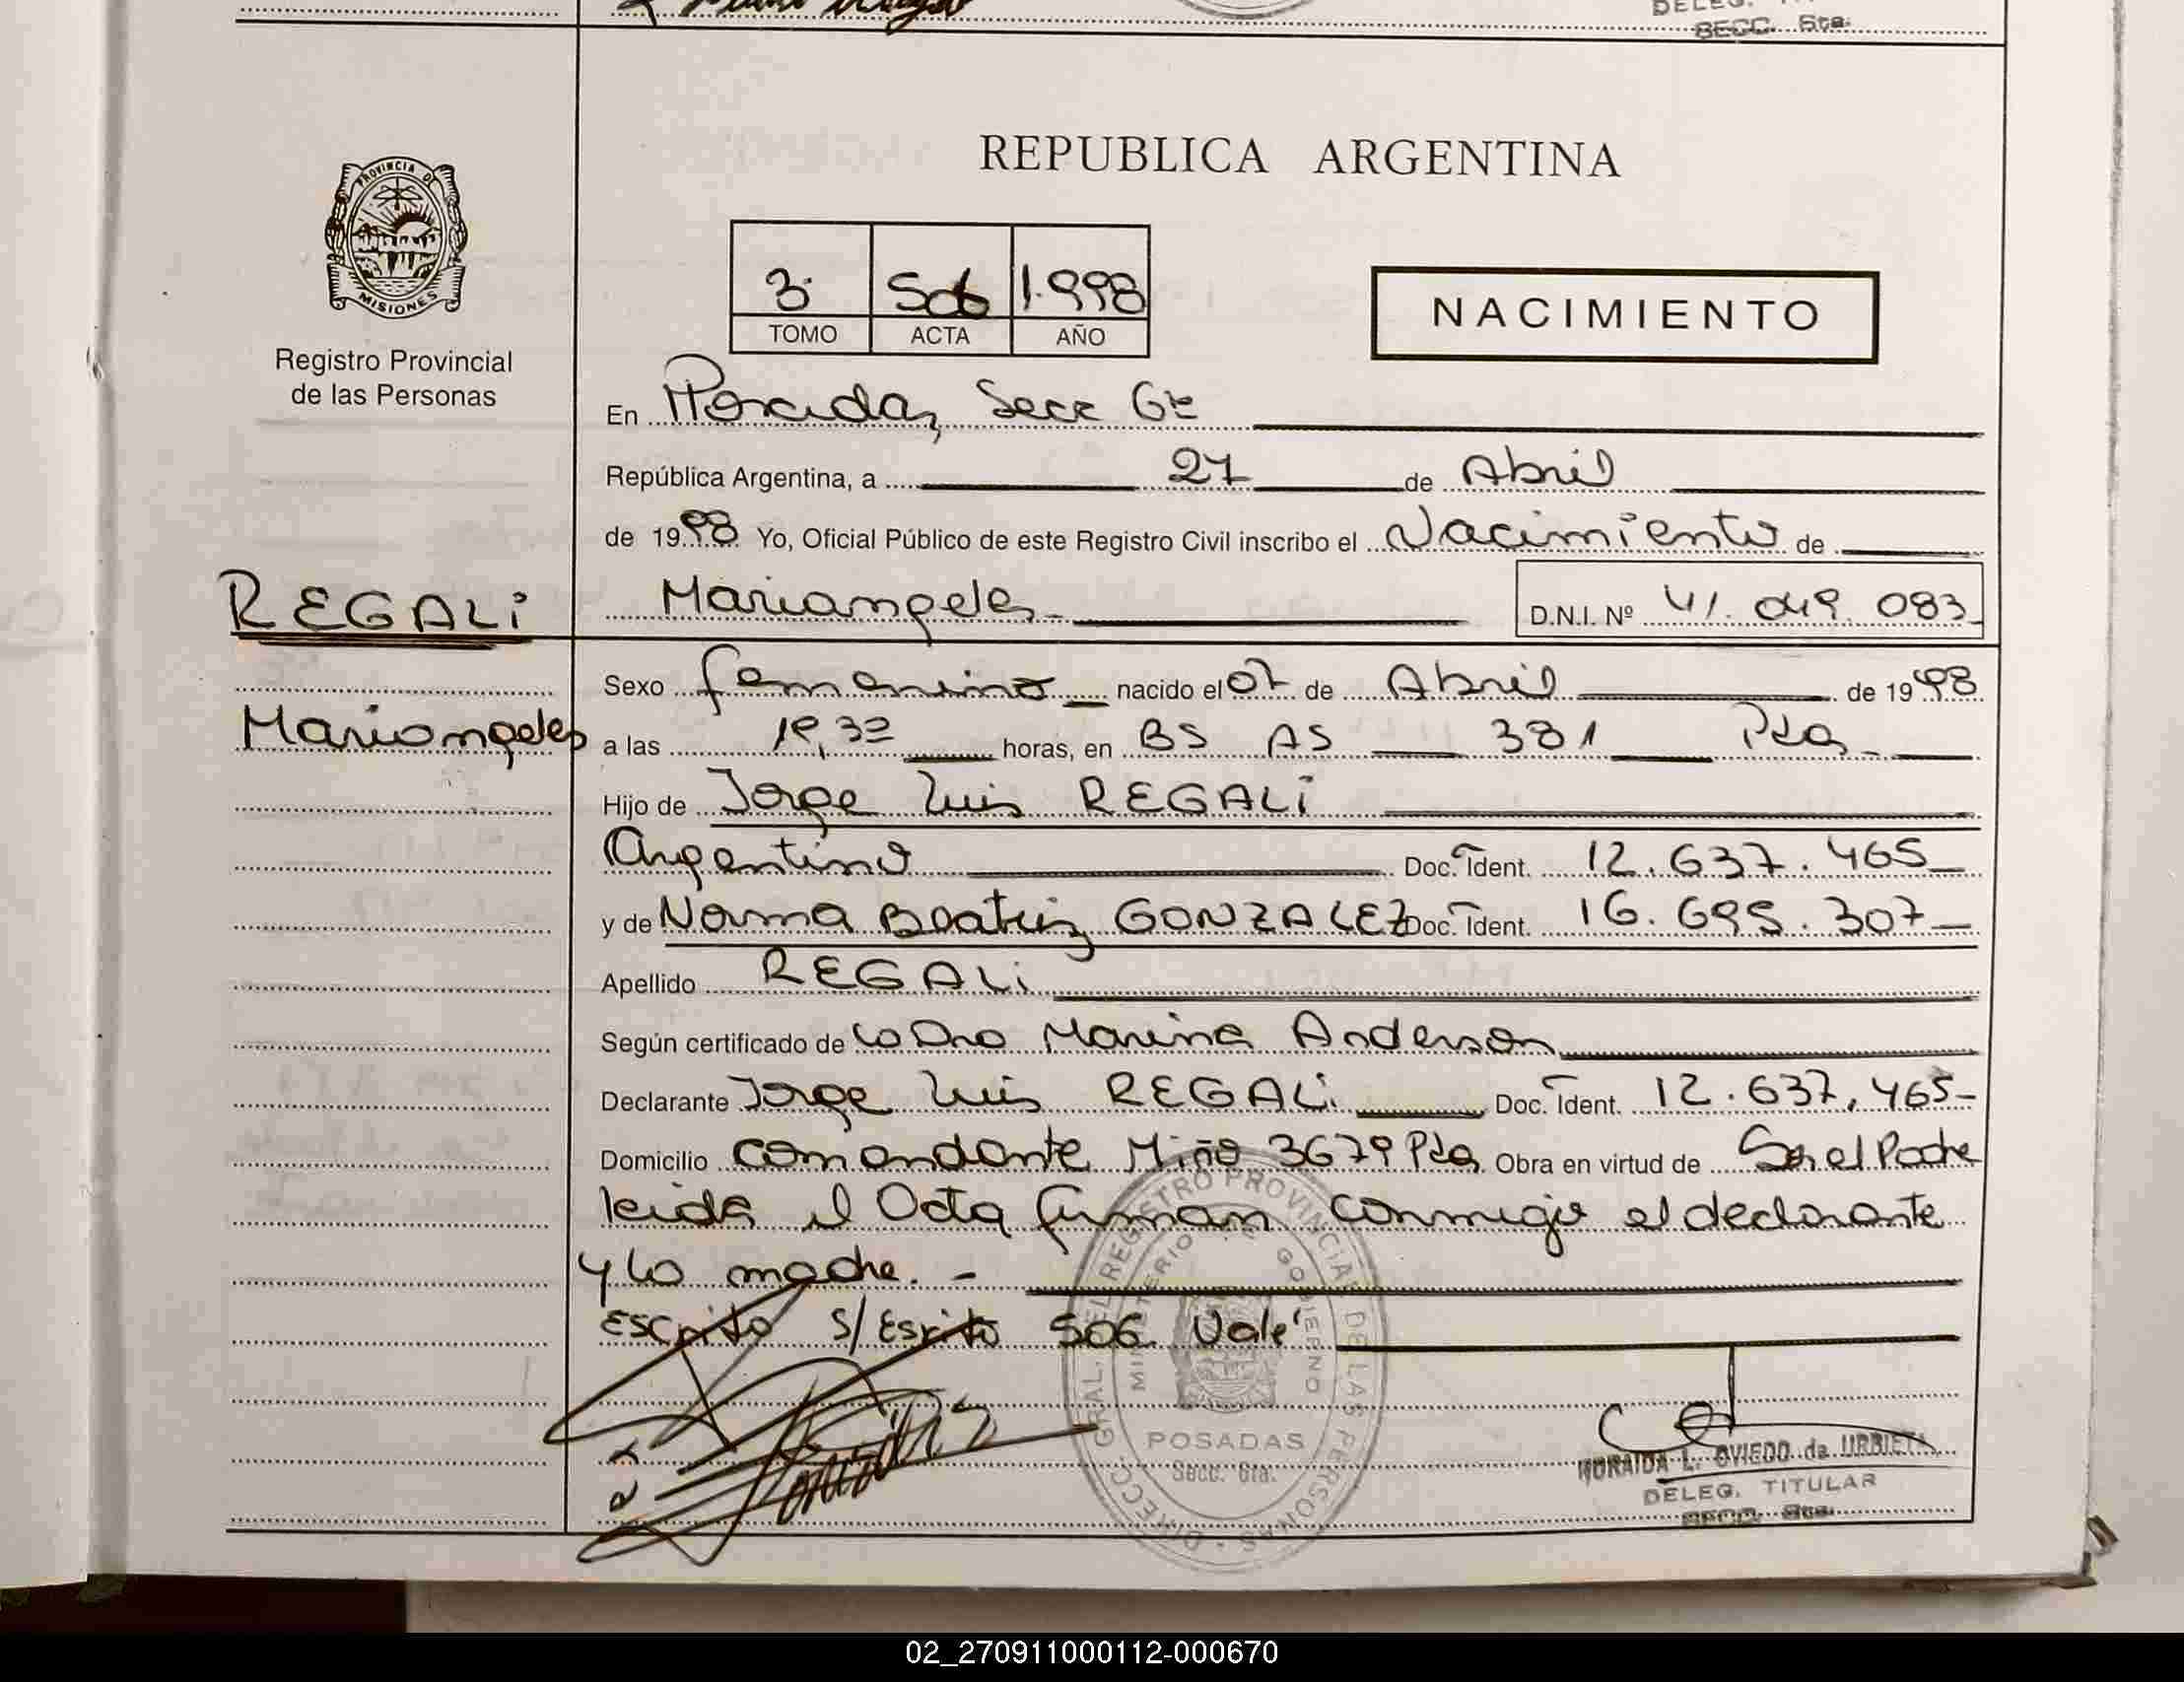 DELEG.
SECC. 6ta.
PROVINCIA DE
MISIONES
Registro Provincial
de las Personas
REPUBLICA ARGENTINA
3 506 1.998
TOMO ACTA AÑO
NACIMIENTO
En Posadas, Secc 6ta
República Argentina, a 27 de Abril
de 1998 Yo, Oficial Público de este Registro Civil inscribo el Nacimiento de
REGALi
Mariangeles D.N.I. Nº 41.049.083
Sexo femenino nacido el 07 de Abril de 1998
Mariangeles
a las horas, en BS AS 381 Pdas
Hijo de Jorge Luis REGALi
Argentino Doc. Ident. 12.637.465
y de Norma Beatriz GONZALEZ Doc. Ident. 16.695.307
Apellido REGALi
Según certificado de la Dra Marina Anderson
Declarante Jorge Luis REGALi Doc. Ident. 12.637,465
Domicilio Comandante Miño 3679 Pdas Obra en virtud de Ser el Padre
leida el Acta firman conmigo el declarante
y la madre. -
Escrito s/ Escrito 506 Vale
DIRECC. GRAL. DEL REGISTRO PROVINCIAL DE LAS PERSONAS
MINISTERIO DE GOBIERNO
POSADAS
Secc. 6ta.
NORAIDA L. OVIEDO de URBIETA
DELEG. TITULAR
SECC. 6ta.
02_270911000112-000670